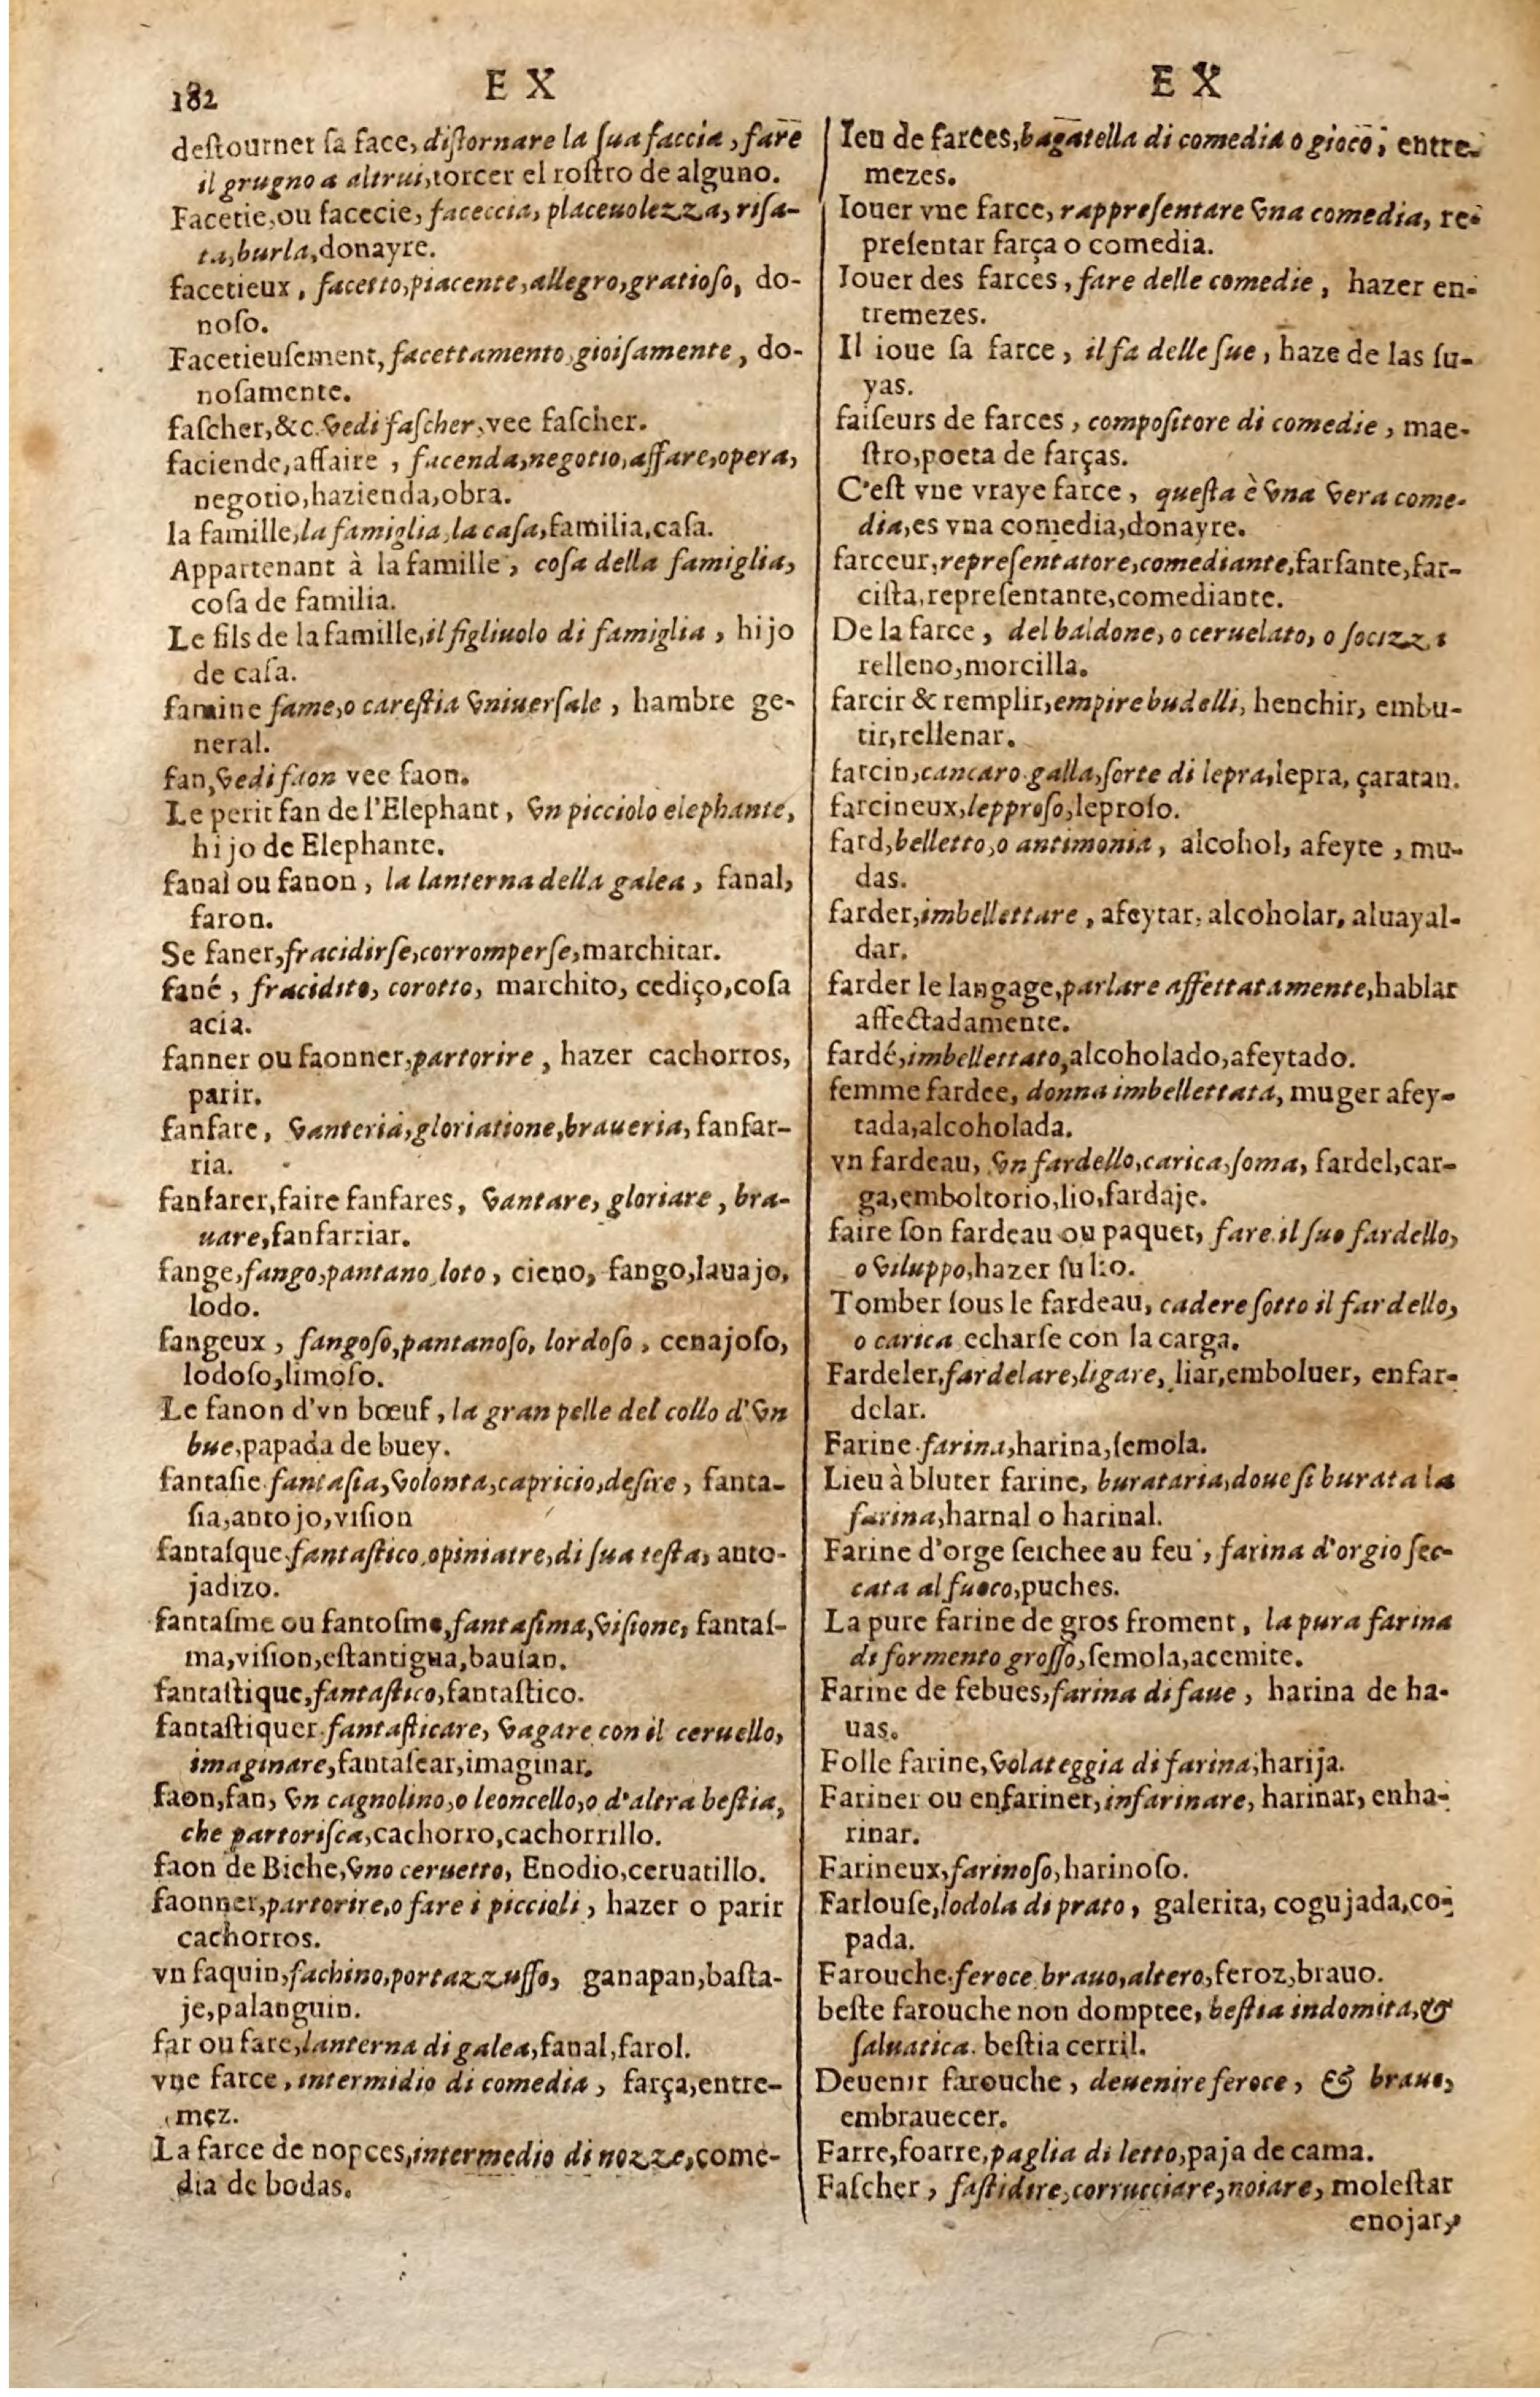 182
E X
E X
deſtournet ſa face, diſtornare la ſua faccia, fare
il grugno a altrui, torcer el roſtro de alguno.
Facetie, ou facecie, faceccia, placeuolezza, riſa-
ta, burla, donayre.
facetieux, facetto, piacente, allegro, gratioſo, do-
noſo.
Facetieuſement, facettamento, gioiſamente, do-
noſamente.
faſcher, &c. vedi faſcher, vee faſcher.
faciende, affaire, facenda, negotio, affare, opera,
negotio, hazienda, obra.
la famille, la famiglia, la caſa, familia, caſa.
Appartenant à la famille, coſa della famiglia,
coſa de familia.
Le fils de la famille, il figliuolo di famiglia, hijo
de caſa.
famine fame, o careſtia vniuerſale, hambre ge-
neral.
fan, vedi faon vee faon.
Le petit fan de l'Elephant, vn picciolo elephante,
hijo de Elephante.
fanal ou fanon, la lanterna della galea, fanal,
faron.
Se faner, fracidirſe, corromperſe, marchitar.
fané, fracidito, corotto, marchito, cediço, coſa
acia.
fanner ou faonner, partorire, hazer cachorros,
parir.
fanfare, vanteria, gloriatione, braueria, fanfar-
ria.
fanfarer, faire fanfares, vantare, gloriare, bra-
uare, fanfarriar.
fange, fango, pantano, loto, cieno, fango, lauajo,
lodo.
fangeux, fangoſo, pantanoſo, lordoſo, cenajoſo,
lodoſo, limoſo.
Le fanon d'vn bœuf, la gran pelle del collo d'vn
bue, papada de buey.
fantaſie fantaſia, volonta, capricio, deſire, fanta-
ſia, antojo, viſion
fantaſque fantaſtico, opiniatre, di ſua teſta, anto-
jadizo.
fantaſme ou fantoſme, fantaſima, viſione, fantaſ-
ma, viſion, eſtantigua, bauſan.
fantaſtique, fantaſtico, fantaſtico.
fantaſtiquer fantaſticare, vagare con il ceruello,
imaginare, fantaſear, imaginar.
faon, fan, vn cagnolino, o leoncello, o d'altra beſtia,
che partoriſca, cachorro, cachorrillo.
faon de Biche, vno ceruetto, Enodio, ceruatillo.
faonner, partorire, o fare i piccioli, hazer o parir
cachorros.
vn faquin, fachino, portazzuffo, ganapan, baſta-
je, palanguin.
far ou fare, lanterna di galea, fanal, farol.
vne farce, intermidio di comedia, farça, entre-
mez.
La farce de nopces, intermedio di nozze, come-
dia de bodas.
Ieu de farces, bagatella di comedia o gioco, entre-
mezes.
Iouer vne farce, rappreſentare vna comedia, re-
preſentar farça o comedia.
Jouer des farces, fare delle comedie, hazer en-
tremezes.
Il ioue ſa farce, il fa delle ſue, haze de las ſu-
yas.
faiſeurs de farces, compoſitore di comedie, mae-
ſtro, poeta de farças.
C'eſt vne vraye farce, queſta è vna vera come-
dia, es vna comedia, donayre.
farceur, repreſentatore, comediante, farſante, far-
ciſta, repreſentante, comediante.
De la farce, del baldone, o ceruelato, o ſocizzi
relleno, morcilla.
farcir & remplir, empire budelli, henchir, embu-
tir, rellenar.
farcin, cancaro galla, ſorte di lepra, lepra, çaratan.
farcineux, lepproſo, leproſo.
fard, belletto, o antimonia, alcohol, afeyte, mu-
das.
farder, imbellettare, afeytar, alcoholar, aluayal-
dar.
farder le langage, parlare affettatamente, hablar
affectadamente.
fardé, imbellettato, alcoholado, afeytado.
femme fardee, donna imbellettata, muger afey-
tada, alcoholada.
vn fardeau, vn fardello, carica, ſoma, fardel, car-
ga, emboltorio, lio, fardaje.
faire ſon fardeau ou paquet, fare il ſuo fardello,
o viluppo, hazer ſu lio.
Tomber ſous le fardeau, cadere ſotto il fardello,
o carica echarſe con la carga.
Fardeler, fardelare, ligare, liar, emboluer, enfar-
delar.
Farine farina, harina, ſemola.
Lieu à bluter farine, burataria, doue ſi burata la
farina, harnal o harinal.
Farine d'orge ſeichee au feu, farina d'orgio ſec-
cata al fuoco, puches.
La pure farine de gros froment, la pura farina
di formento groſſo, ſemola, acemite.
Farine de febues, farina di faue, harina de ha-
uas.
Folle farine, volateggia di farina, harija.
Fariner ou enfariner, infarinare, harinar, enha-
rinar.
Farineux, farinoſo, harinoſo.
Farlouſe, lodola di prato, galerita, cogujada, co-
pada.
Farouche feroce brauo, altero, feroz, brauo.
beſte farouche non domptee, beſtia indomita, &
ſaluatica. beſtia cerril.
Deuenir farouche, deuenire feroce, & brauo,
embrauecer.
Farre, foarre, paglia di letto, paja de cama.
Faſcher, faſtidire, corrucciare, noiare, moleſtar
enojar,